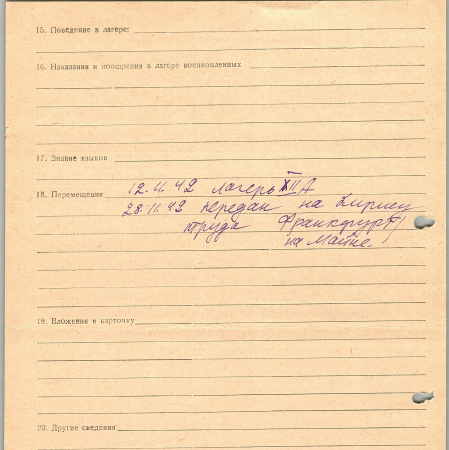 15. Поведение в лагере:
16. Наказания и поощрения в лагере военнопленных
17. Знание языков
18. Перемещения 12.11.42 лагерь XII A
28.11.42 передан на биржу
труда Франкфурт/
на Майне.
19. Вложения в карточку
20. Другие сведения